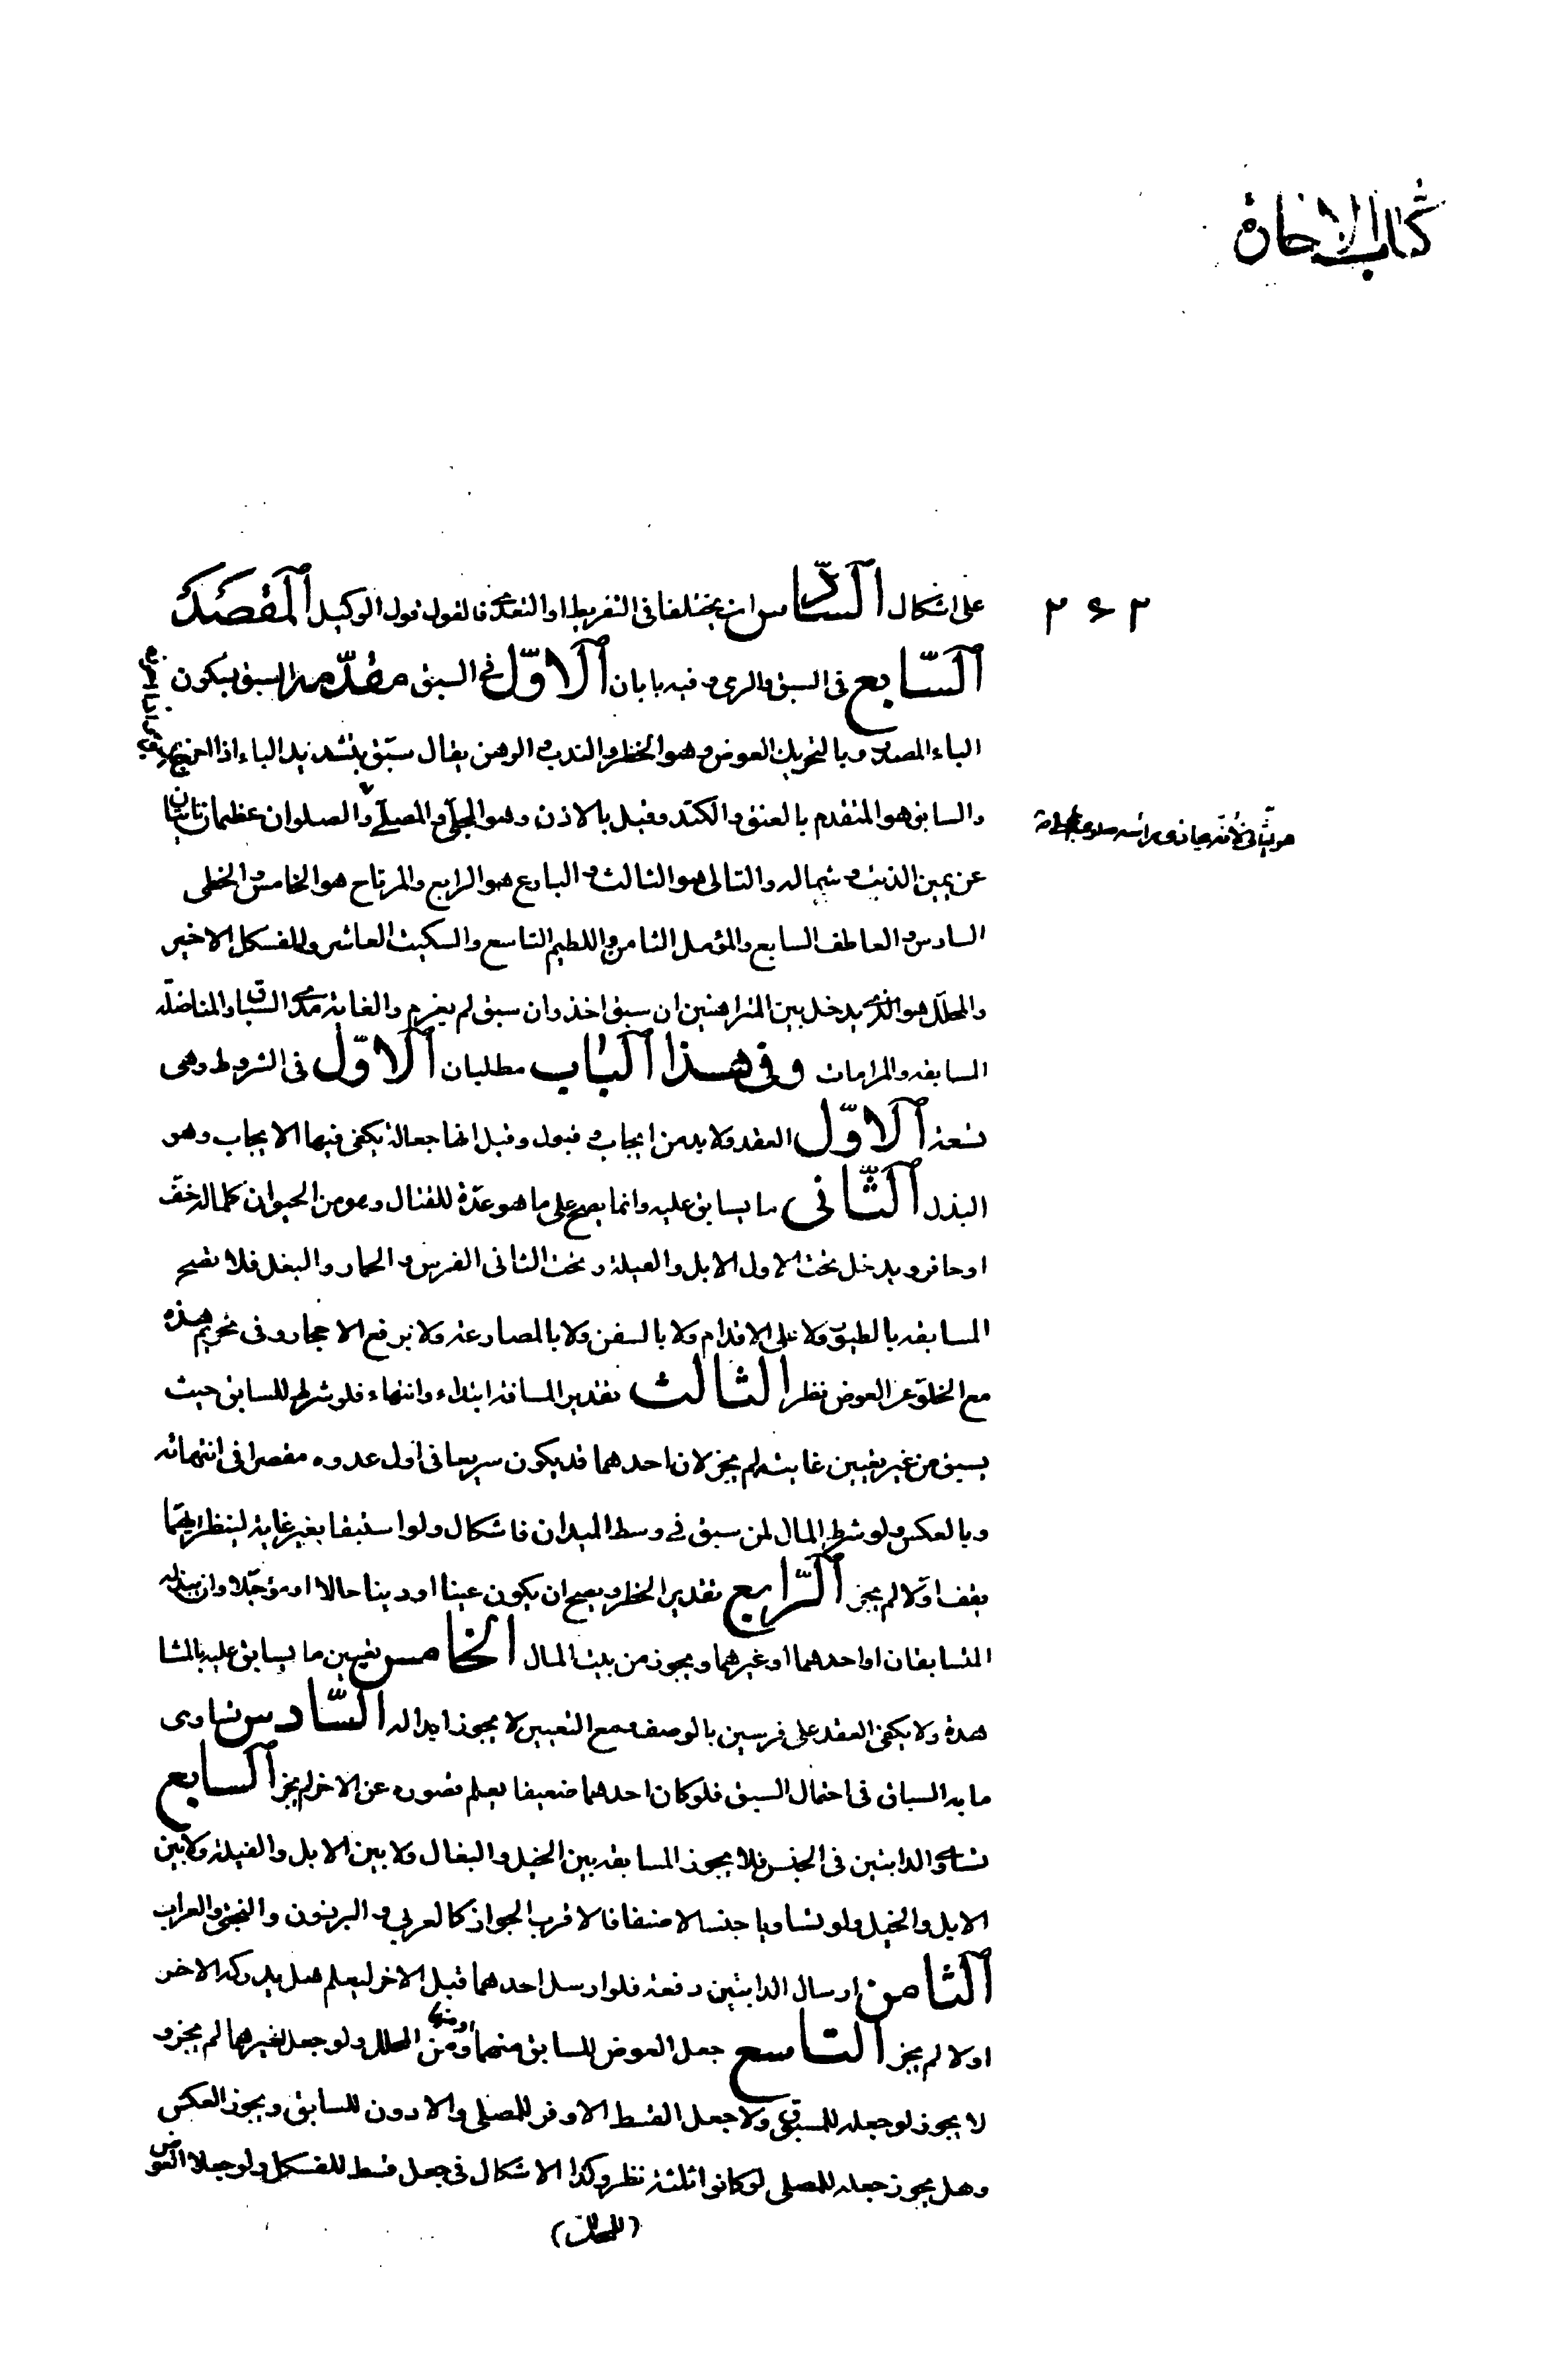 كتاب الاجارة
٢٦٢
على اشكال السادس ان يختلفا فى التفريط او التعدى فالقول قول الوكيل المقصد
السابع فى السبق والرمى وفيه بابان الاول فى السبق مقدمه السبق بسكون
الباء المصدر وبالتحريك العوض وهو الخطر والندب والرهن يقال سبّق بتشديد الباء اذا اخرج
والسابق هو المتقدم بالعنق والكتد وقيل بالاذن وهو المجلى والمصلى والصلوان عظمان نابتان
عن يمين الذنب وشماله والتالى هو الثالث والبارع هو الرابع والمرتاح هو الخامس والخطى
السادس والعاطف السابع والمؤمل الثامن واللطيم التاسع والسكيت العاشر والفسكل الاخير
والمحلل هو الذى يدخل بين المتراهنين ان سبق اخذ وان سبق لم يغرم والغاية مدى السباق والمناضلة
المسابقه والمرامات وفى هذا الباب مطلبان الاول فى الشروط وهى
تسعة الاول العقد ولا بد من ايجاب وقبول وقيل انها جعالة يكفى فيها الايجاب وهو
البذل الثانى ما يسابق عليه وانما يصح على ما هو عدّة للقتال وهو من الحيوان كلما له خفّ
او حافر ويدخل تحت الاول الابل والفيلة وتحت الثانى الفرس والحمار والبغل فلا تصح
المسابقه بالطيور ولا على الاقدام ولا بالسفن ولا بالمصارعة ولا برفع الاحجار وفى تحريم هذه
مع الخلو عن العوض نظر الثالث تقدير المسافة ابتداء وانتهاء فلو شرط للسابق حيث
يسبق من غير تعيين غايته لم يجز لان احدهما قد يكون سريعا فى اول عدوه مقصرا فى انتهائه
وبالعكس ولو شرط المال لمن سبق فى وسط الميدان فاشكال ولو استبقا بغير غاية لينظر ايهما
يقف اوّلا لم يجز الرابع تقدير الخطر ويصح ان يكون عينا او دينا حالا او مؤجلا وان يبذله
المتسابقان او احدهما او غيرهما ويجوز من بيت المال الخامس تعيين ما يسابق عليه بالمشا
هدة ولا يكفى العقد على فرسين بالوصف ومع التعيين لا يجوز ابداله السادس تساوى
ما به السباق فى احتمال السبق فلو كان احدهما ضعيفا يعلم قصوره عن الاخر لم يجز السابع
تساوى الدابتين فى الجنس فلا يجوز المسابقه بين الخيل والبغال ولا بين الابل والفيلة ولا بين
الابل والخيل ولو تساويا جنسا لا صنفا فالاقرب الجواز كالعربى والبرذون والبختى والعراب
الثامن ارسال الدابتين دفعة فلو ارسل احدهما قبل الاخر ليعلم هل يدركه الاخر
او لا لم يجز التاسع جعل العوض للسابق منهما ومن المحلل ولو جعل لغيرهما لم يجز و
لا يجوز لو جعله للمسبوق ولا جعل القسط الاوفر للمصلى والادون للسابق ويجوز العكس
وهل يجوز جعله للمصلى لو كانوا ثلثة نظر وكذا الاشكال فى جعل قسط للفسكل ولو جعلا العوض